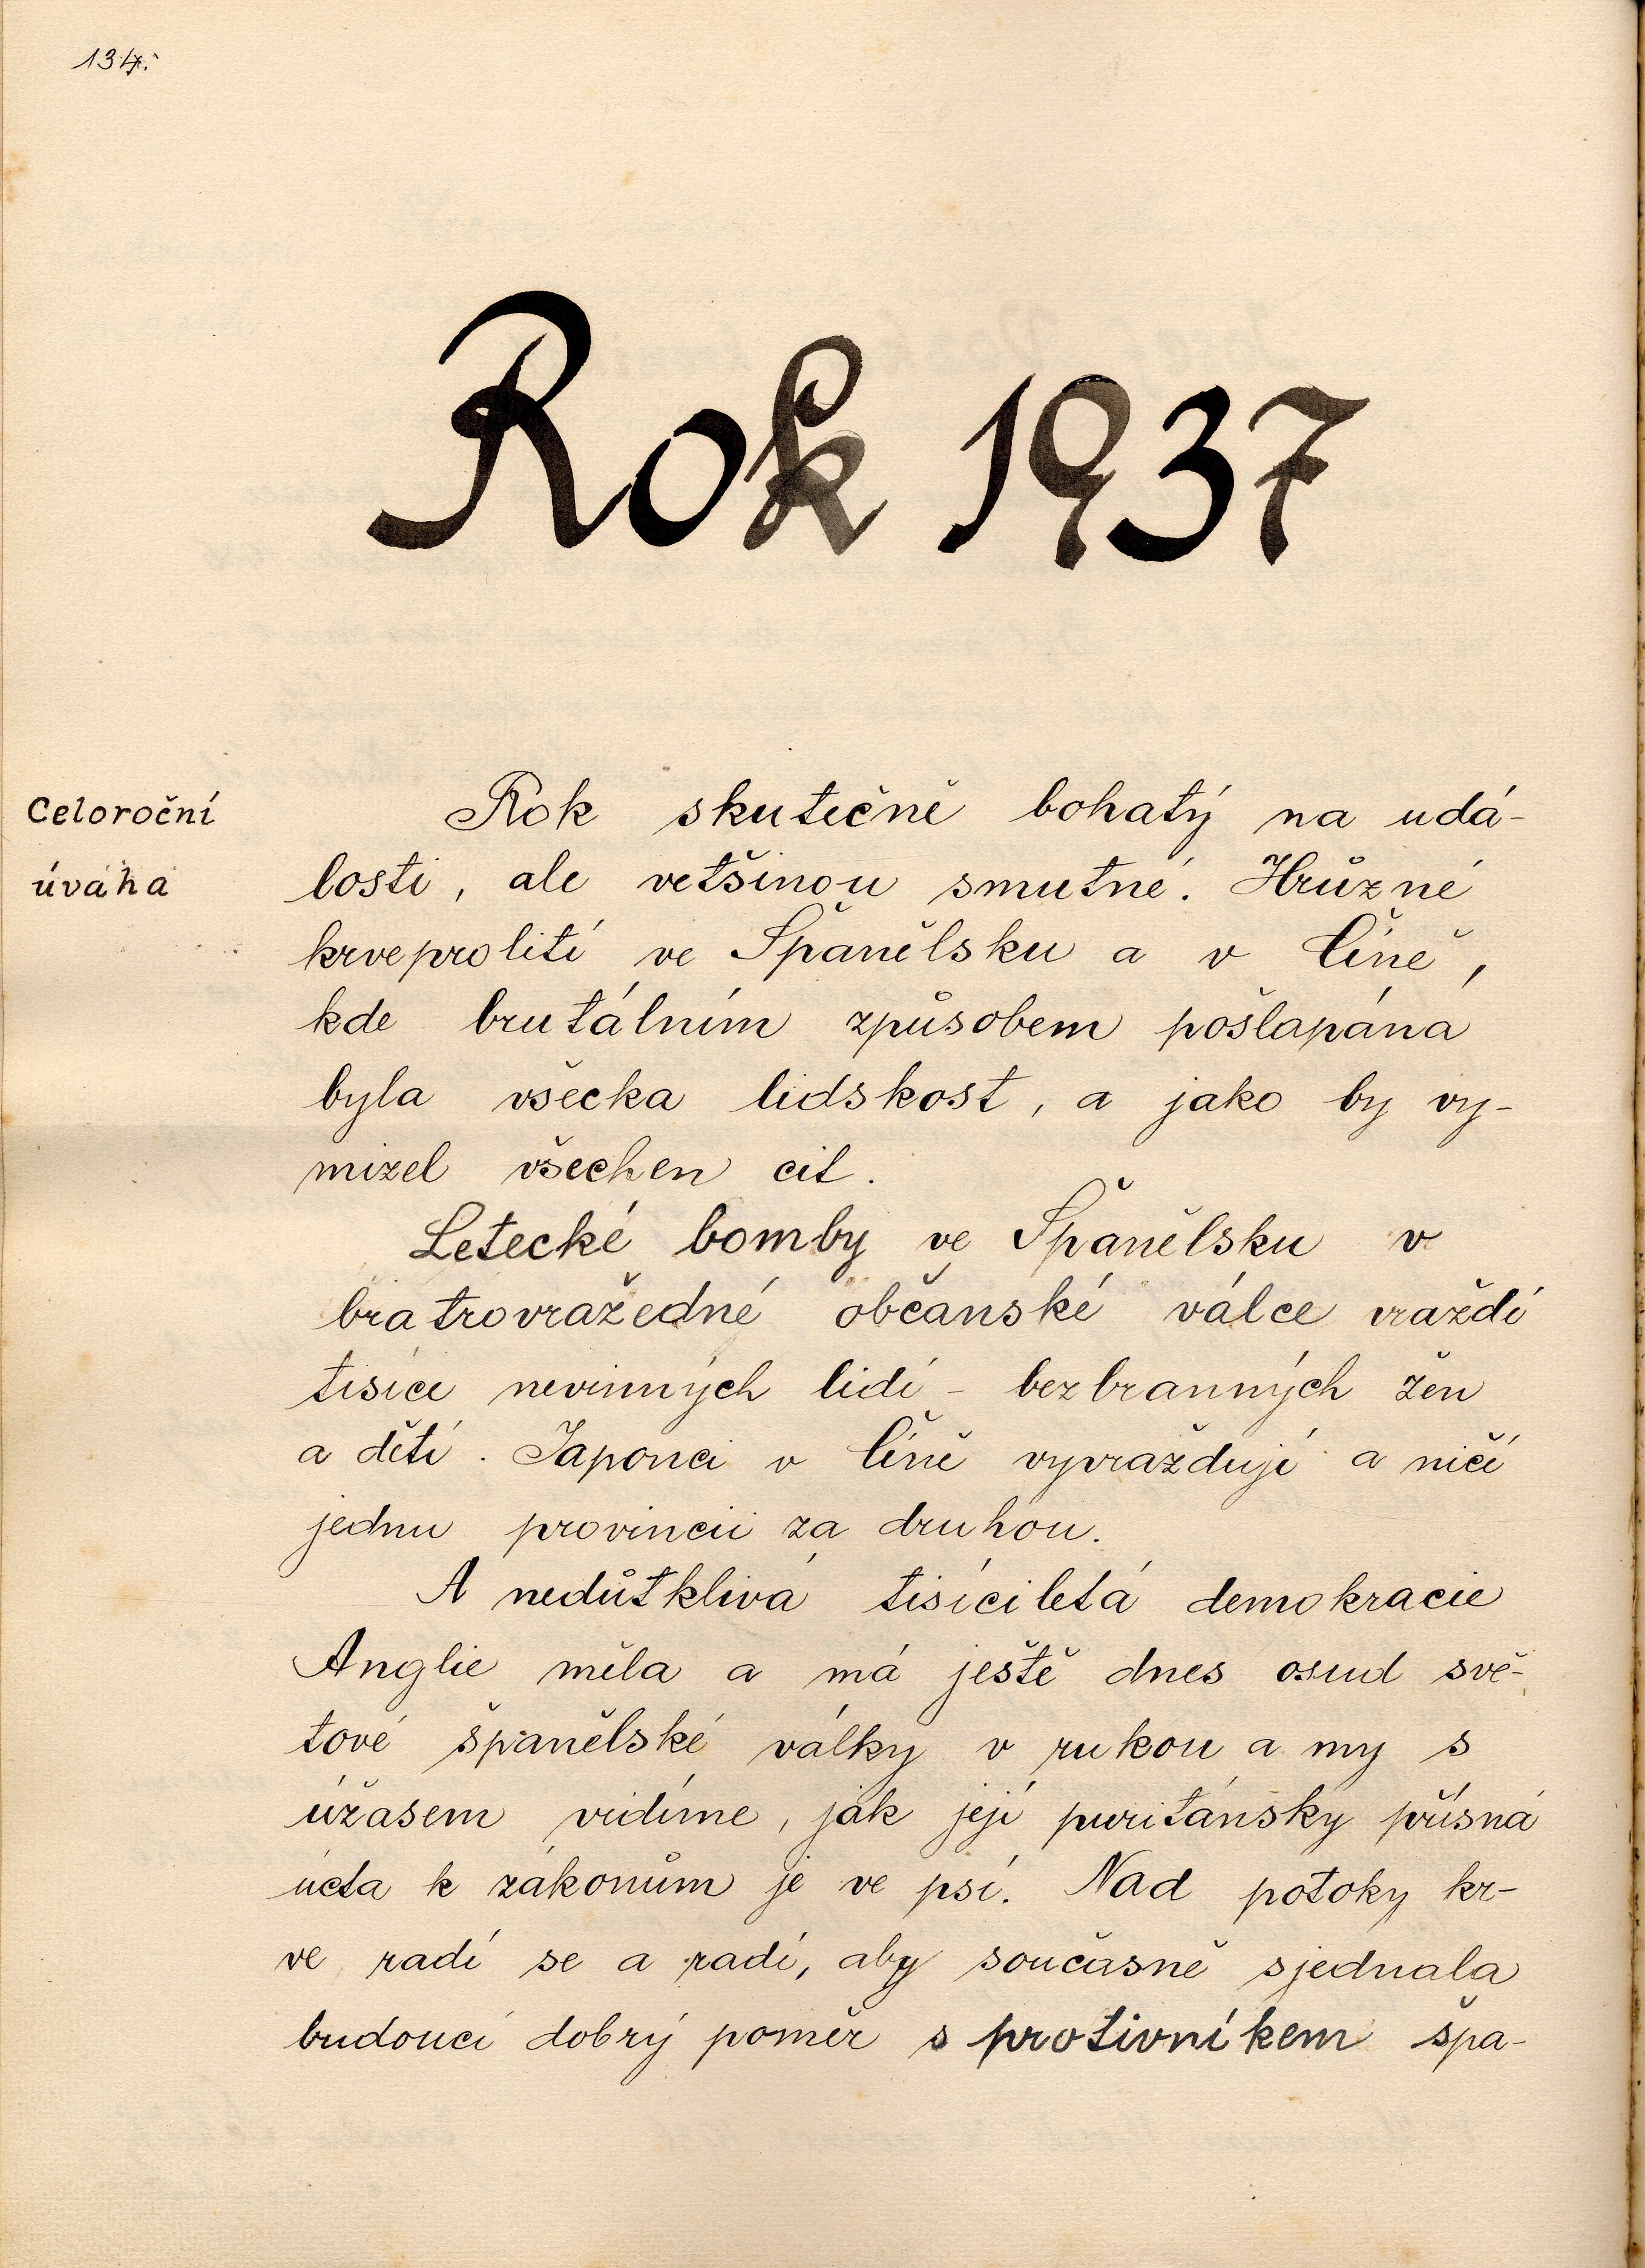 134.
Rok 1937
Celoroční
úvaha
Rok skutečně bohatý na udá-
losti, ale vetšinou smutné. Hrůzné
krveprolití ve Španělsku a v Číně,
kde brutálním způsobem pošlapána
byla všecka lidskost, a jako by vy-
mizel všechen cit.
Letecké bomby ve Španělsku v
bratrovražedné občanské válce vraždí
tisíce nevinných lidí - bezbranných žen
a dětí. Japonci v Číně vypražďují a ničí
jednu provincii za druhou.
A nedůtklivá tisíciletá demokracie
Anglie měla a má ještě dnes osud svě-
tové španělské války v rukou a my s
úžasem vidíme, jak její puritánsky přísná
úcta k zákonům je ve psí. Nad potoky kr-
ve radí se a radí, aby současně sjednala
budoucí dobrý poměr s protivníkem špa-